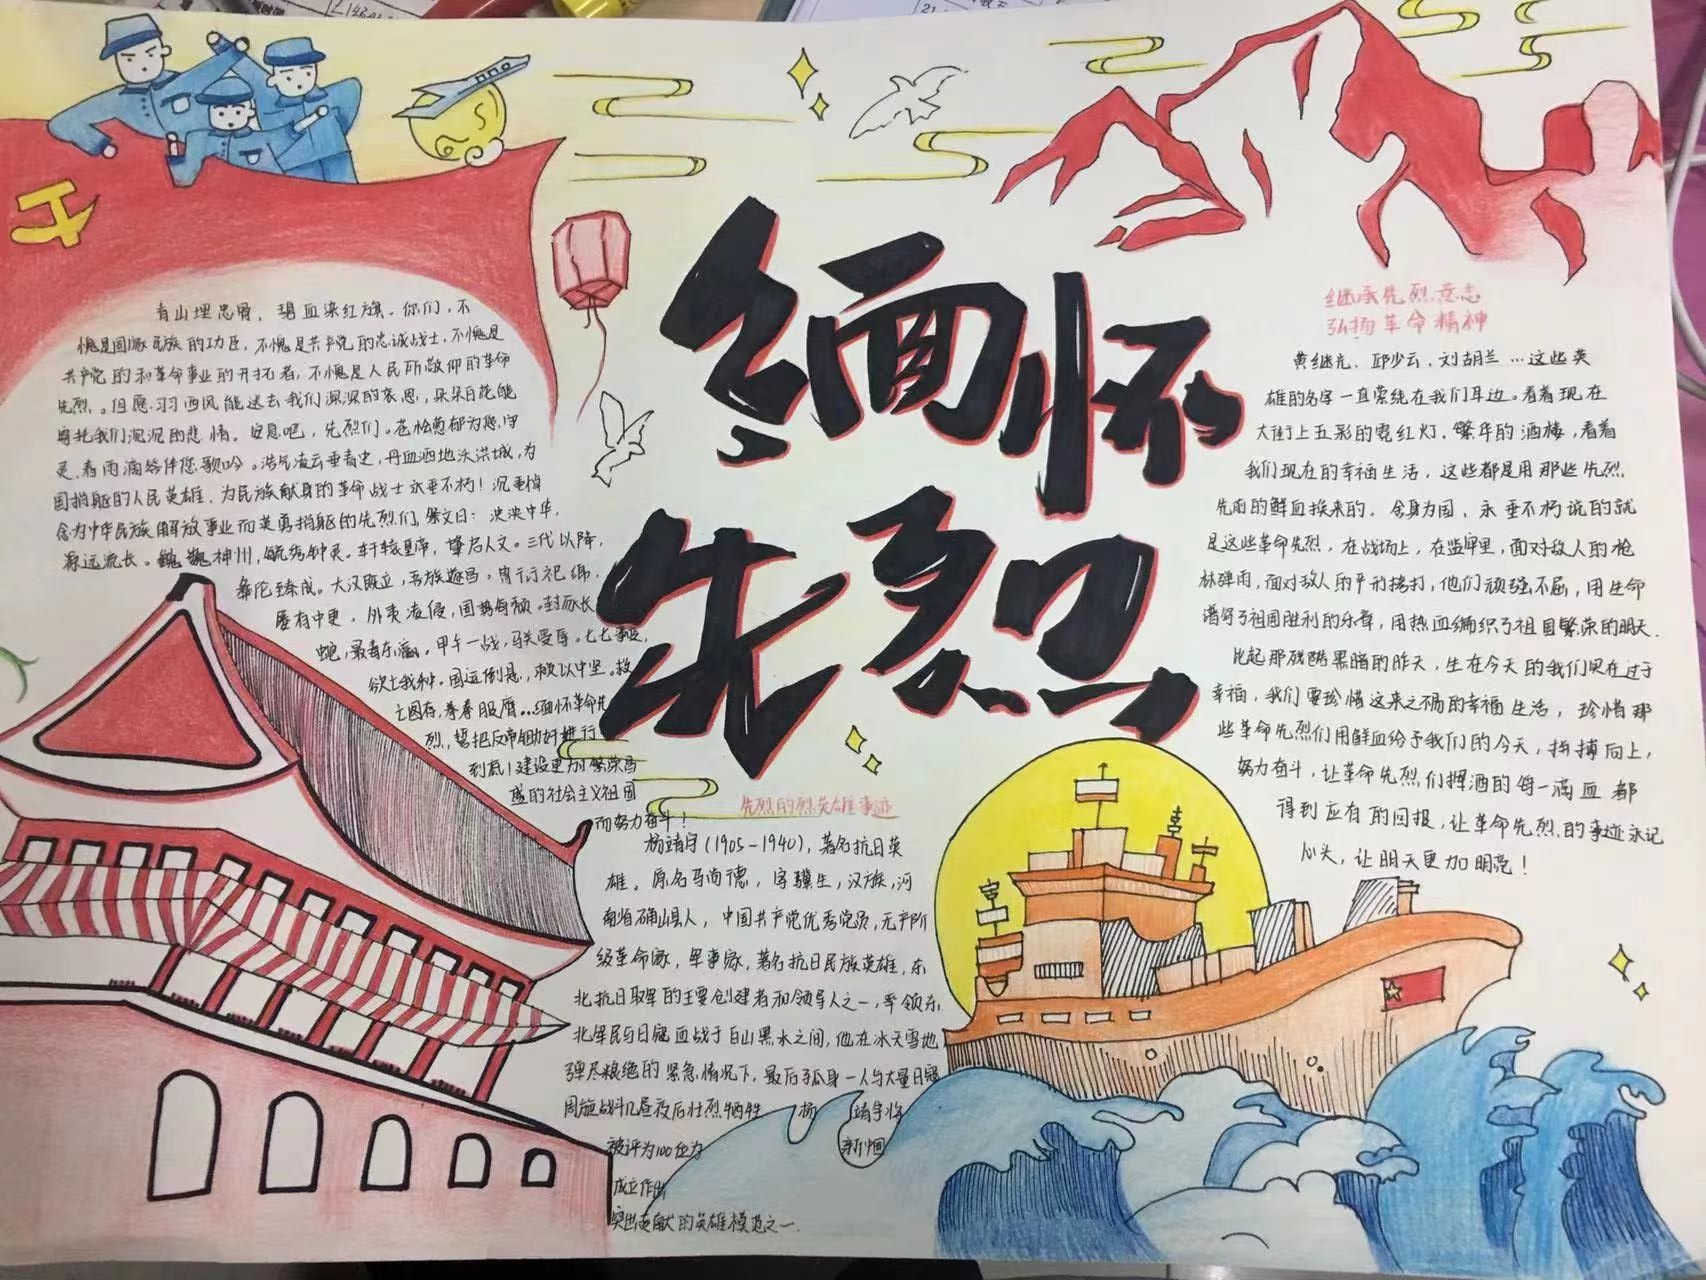 缅怀
先烈
青山埋忠骨，碧血染红旗。你们，不
愧是国家民族的功臣，不愧是共产党的忠诚战士，不愧是
共产党的和革命事业的开拓者，不愧是人民所敬仰的革命
先烈。但愿习习西风能送去我们深深的哀思，朵朵白花能
寄托我们沉沉的悲情。安息吧，先烈们。苍松葱郁为您守
灵，春雨滴答伴您歌吟。浩气凌云垂青史，丹血洒地沃洪城，为
国捐躯的人民英雄、为民族献身的革命战士永垂不朽！沉重悼
念为中华民族解放事业而英勇捐躯的先烈们，祭文曰：泱泱中华，
源远流长。巍巍神州，毓秀钟灵。轩辕皇帝，肇启人文。三代以降，
秦陀臻成。大汉既立，五族遂昌，曾行祀绵，
屡有中更，外夷凌侵，国势每颓。封豕长
蛇，最毒东瀛。甲午一战，马关受辱。七七事变，
欲亡我种。国运倒悬，赖以中坚。救
亡图存，拳拳服膺…缅怀革命先
烈，誓把反帝锄奸进行
到底！建设更加繁荣昌
盛的社会主义祖国
而努力奋斗！
先烈的烈英雄事迹
杨靖宇(1905-1940)，著名抗日英
雄。原名马尚德，字骥生，汉族，河
南省确山县人，中国共产党优秀党员，无产阶
级革命家，军事家，著名抗日民族英雄，东
北抗日联军的主要创建者和领导人之一，率领东
北军民与日寇血战于白山黑水之间，他在冰天雪地，
弹尽粮绝的紧急情况下，最后孤身一人与大量日寇
周旋战斗几昼夜后壮烈牺牲 杨 靖宇将
被评为100位为 新中国
成立作出
突出贡献的英雄模范之一.
继承先烈意志
弘扬革命精神
黄继光、邱少云、刘胡兰…这些英
雄的名字一直萦绕在我们耳边。看着现在
大街上五彩的霓虹灯、繁华的酒楼，看着
我们现在的幸福生活，这些都是用那些先烈
先前的鲜血换来的。舍身为国、永垂不朽说的就
是这些革命先烈，在战场上，在监牢里，面对敌人的枪
林弹雨，面对敌人的严刑拷打，他们顽强不屈，用生命
谱写了祖国胜利的乐章，用热血编织了祖国繁荣的明天.
比起那残酷黑暗的昨天，生在今天的我们实在过于
幸福，我们要珍惜这来之不易的幸福生活，珍惜那
些革命先烈们用鲜血给予我们的今天，拼搏向上，
努力奋斗，让革命先烈们挥洒的每一滴血都
得到应有的回报，让革命先烈的事迹永记
心头，让明天更加明亮！